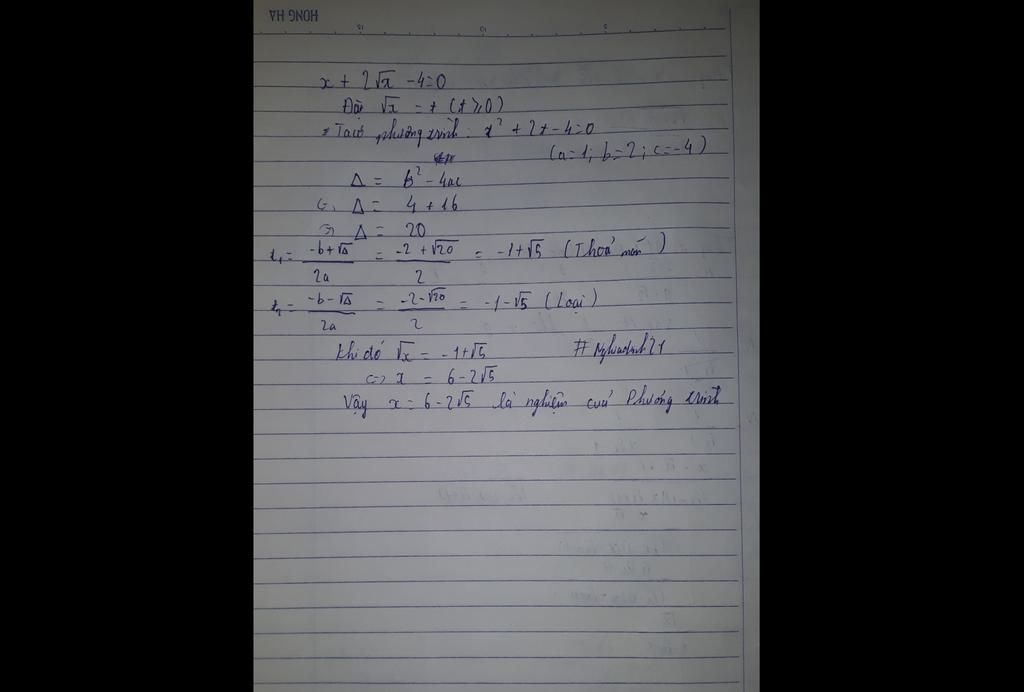 HONG HA
x + 2√x - 4 = 0
Đặt √x = t (t ≥ 0)
Ta có phương trình: t² + 2t - 4 = 0
(a = 1; b = 2; c = -4)
Δ = b² - 4ac
⇔ Δ = 4 + 16
⇔ Δ = 20
t₁ = (-b + √Δ)/2a = (-2 + √20)/2 = -1 + √5 (Thoả mãn)
t₂ = (-b - √Δ)/2a = (-2 - √20)/2 = -1 - √5 (Loại)
Khi đó √x = -1 + √5
⇔ x = 6 - 2√5
Vậy x = 6 - 2√5 là nghiệm của Phương trình